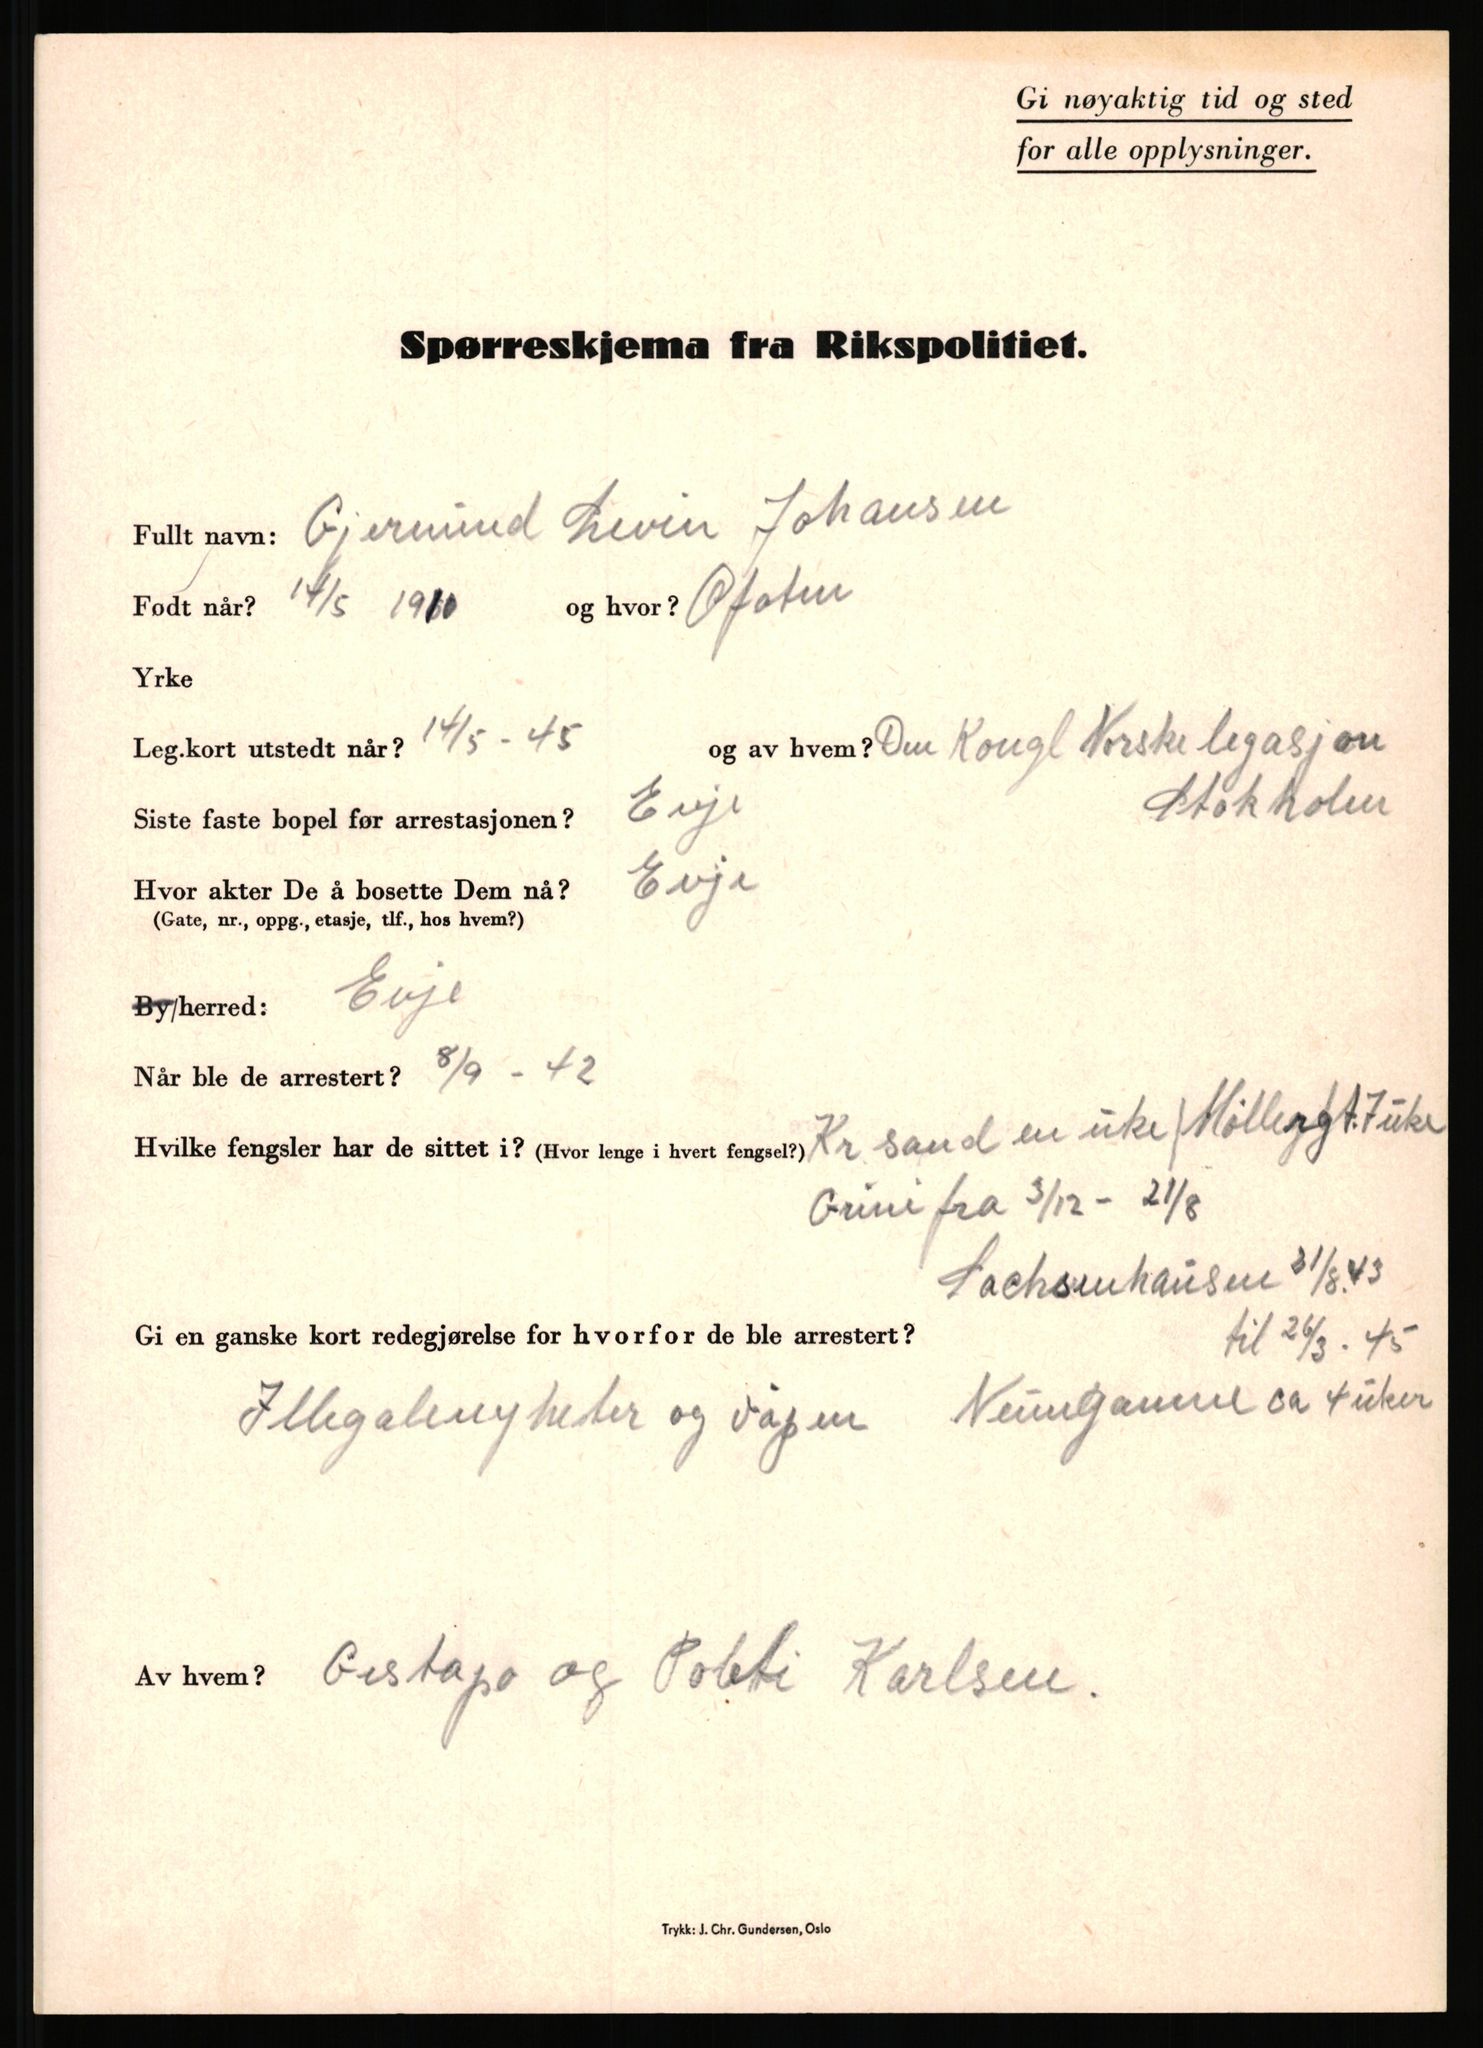 Gi nøyaktig tid og sted
for alle opplysninger.
Spørreskjema fra Rikspolitiet.
Fullt navn: Gjermund Levin Johansen
Født når? 14/5 1910 og hvor? Ofoten
Yrke
Leg.kort utstedt når? 14/5 - 45 og av hvem? Den Kongl Norske legasjon
Stokholm
Siste faste bopel før arrestasjonen? Evje
Hvor akter De å bosette Dem nå? Evje
(Gate, nr., oppg., etasje, tlf., hos hvem?)
By/herred: Evje
Når ble de arrestert? 8/9 - 42
Hvilke fengsler har de sittet i? (Hvor lenge i hvert fengsel?) Kr sand en uke / Möllergt. 7 uke
Grini fra 3/12 - 21/8
Sachsenhausen 31/8.43
Gi en ganske kort redegjørelse for hvorfor de ble arrestert? til 26/3. 45
Illegalenyheter og våpen Neungamme ca 4 uker
Av hvem? Gestapo og Polti Karlsen.
Trykk: J. Chr. Gundersen, Oslo